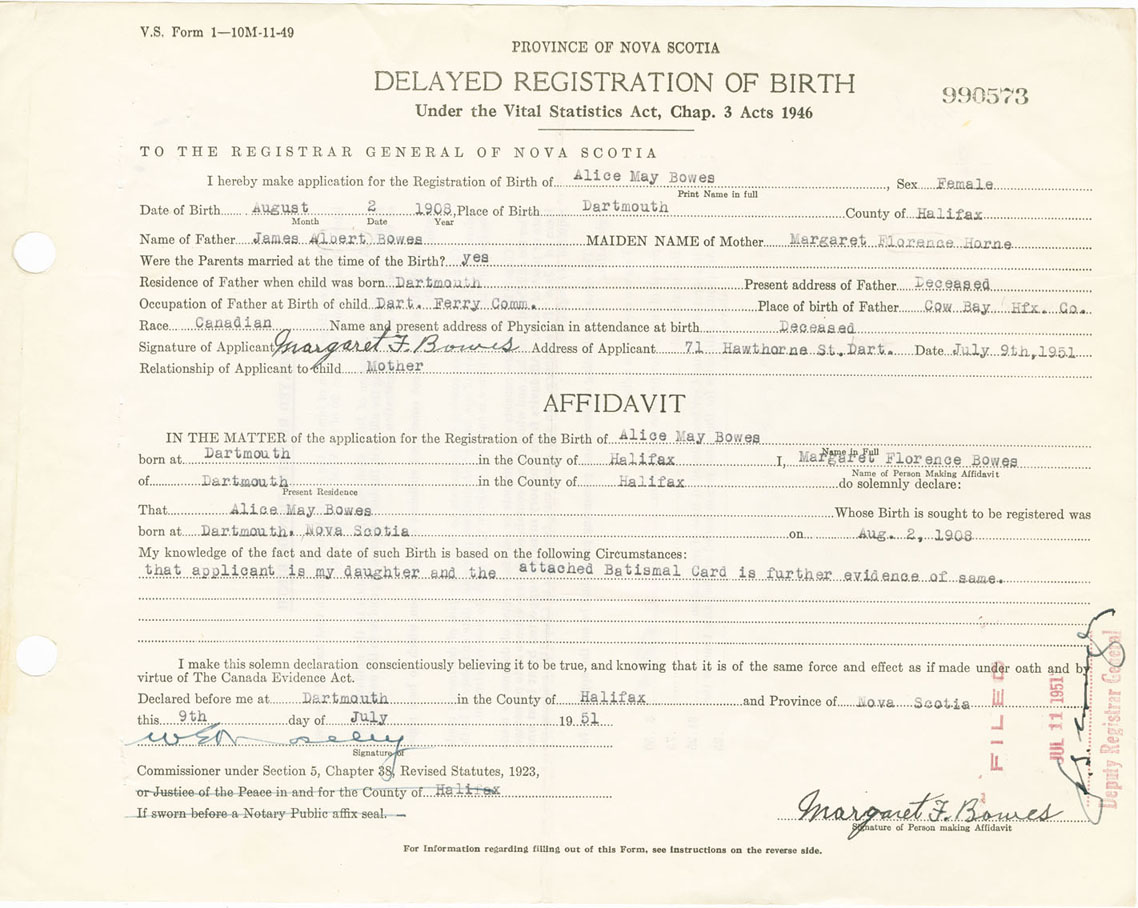 V.S. Form 1—10M-11-49
PROVINCE OF NOVA SCOTIA
DELAYED REGISTRATION OF BIRTH
990573
Under the Vital Statistics Act, Chap. 3 Acts 1946
TO THE REGISTRAR GENERAL OF NOVA SCOTIA
I hereby make application for the Registration of Birth of Alice May Bowes, Sex Female
Print Name in full
Date of Birth August 2 1908, Place of Birth Dartmouth County of Halifax
Month Date Year
Name of Father James Albert Bowes MAIDEN NAME of Mother Margaret Florence Horne
Were the Parents married at the time of the Birth? yes
Residence of Father when child was born Dartmouth Present address of Father Deceased
Occupation of Father at Birth of child Dart. Ferry Comm. Place of birth of Father Cow Bay Hfx. Co.
Race Canadian Name and present address of Physician in attendance at birth Deceased
Signature of Applicant Margaret F. Bowes Address of Applicant 71 Hawthorne St. Dart. Date July 9th, 1951
Relationship of Applicant to child Mother
AFFIDAVIT
IN THE MATTER of the application for the Registration of the Birth of Alice May Bowes
Name in Full
born at Dartmouth in the County of Halifax I, Margaret Florence Bowes
Name of Person Making Affidavit
of Dartmouth in the County of Halifax do solemnly declare:
Present Residence
That Alice May Bowes Whose Birth is sought to be registered was
born at Dartmouth, Nova Scotia on Aug. 2, 1908
My knowledge of the fact and date of such Birth is based on the following Circumstances:
that applicant is my daughter and the attached Batismal Card is further evidence of same.
I make this solemn declaration conscientiously believing it to be true, and knowing that it is of the same force and effect as if made under oath and by
virtue of The Canada Evidence Act.
Declared before me at Dartmouth in the County of Halifax and Province of Nova Scotia
this 9th day of July 1951
Signature of
Commissioner under Section 5, Chapter 38, Revised Statutes, 1923,
or Justice of the Peace in and for the County of Halifax
If sworn before a Notary Public affix seal.
Margaret F. Bowes
Signature of Person making Affidavit
FILED
JUL 11 1951
Deputy Registrar General
For Information regarding filling out of this Form, see instructions on the reverse side.